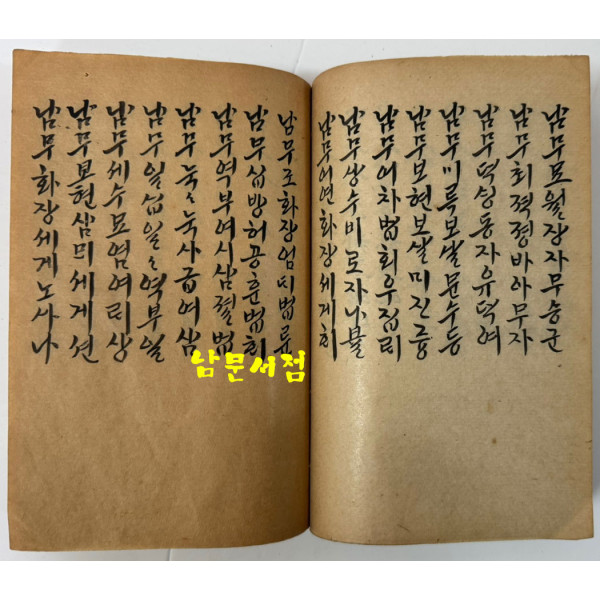 남무묘월장자무승군
남무최적졍바아무자
남무덕싱동자유덕여
남무미륵보살문수등
남무보현보살미진즁
남무어차법회우집리
남무상수비로자나불
남무어연화장세게회
남무조화장엄디법륜
남무십방허공훈법회
남무역부여시삼결법
남무눅〻눅사급여삼
남무일십일〻역부일
남무세수묘염여리상
남무보현삼믜세게션
남무화장세게노사나
남문서점